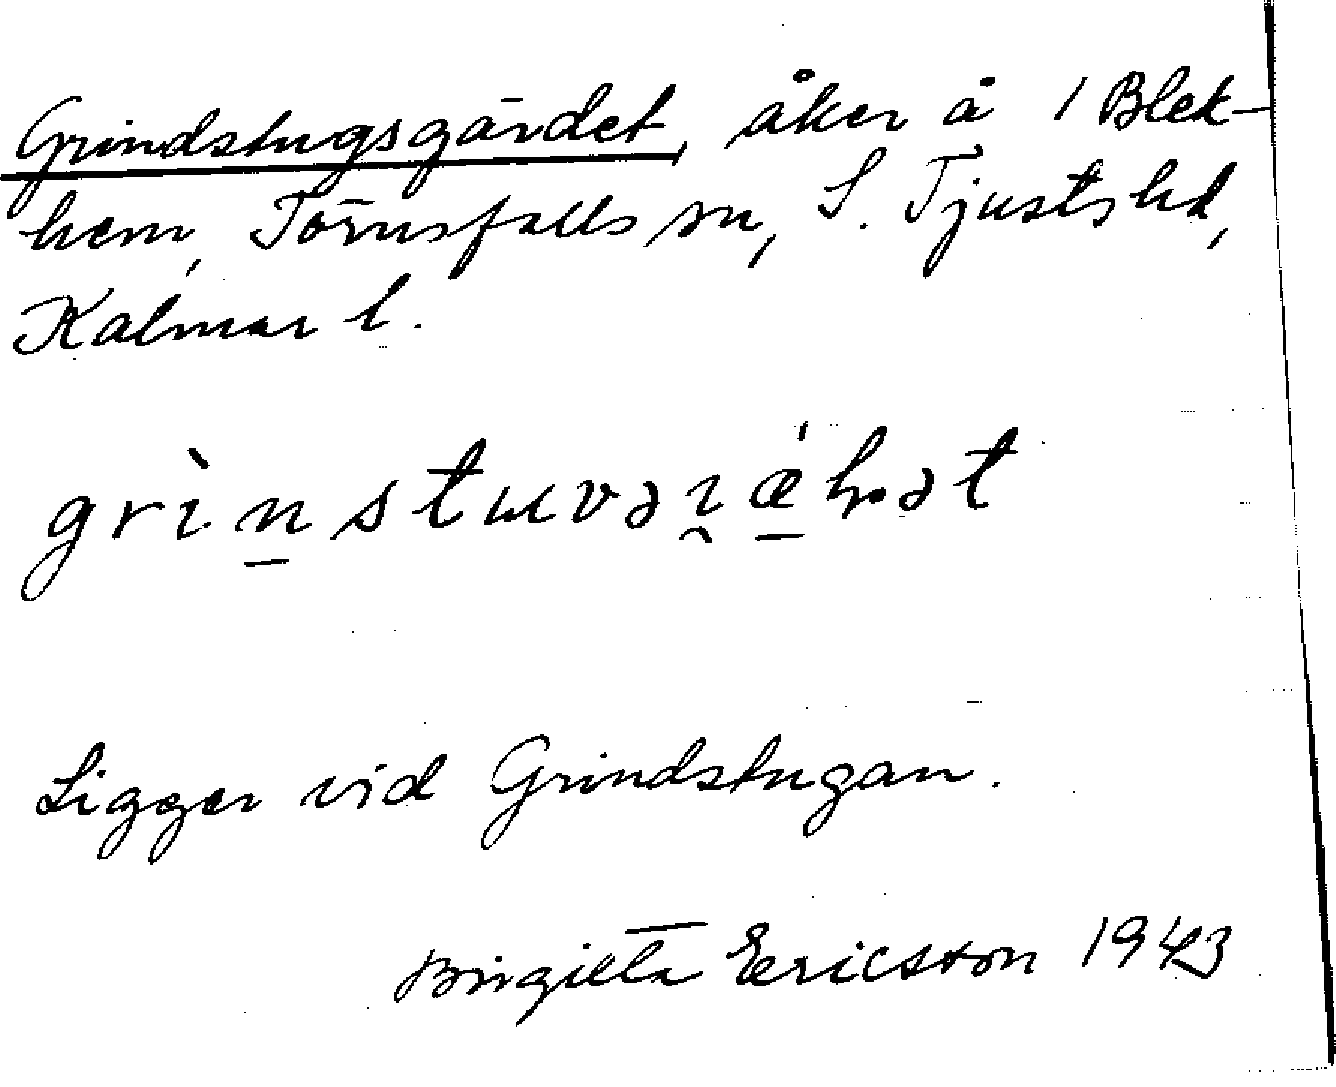 Grindstugsgärdet, åker å 1 Blek-
hem, Törnsfalls sn, S. Tjusts hd,
Kalmar l.
grìn̠stuvəɿ̯ǽ̠ꞕət
Ligger vid Grindstugan.
Birgitta Ericsson 1943